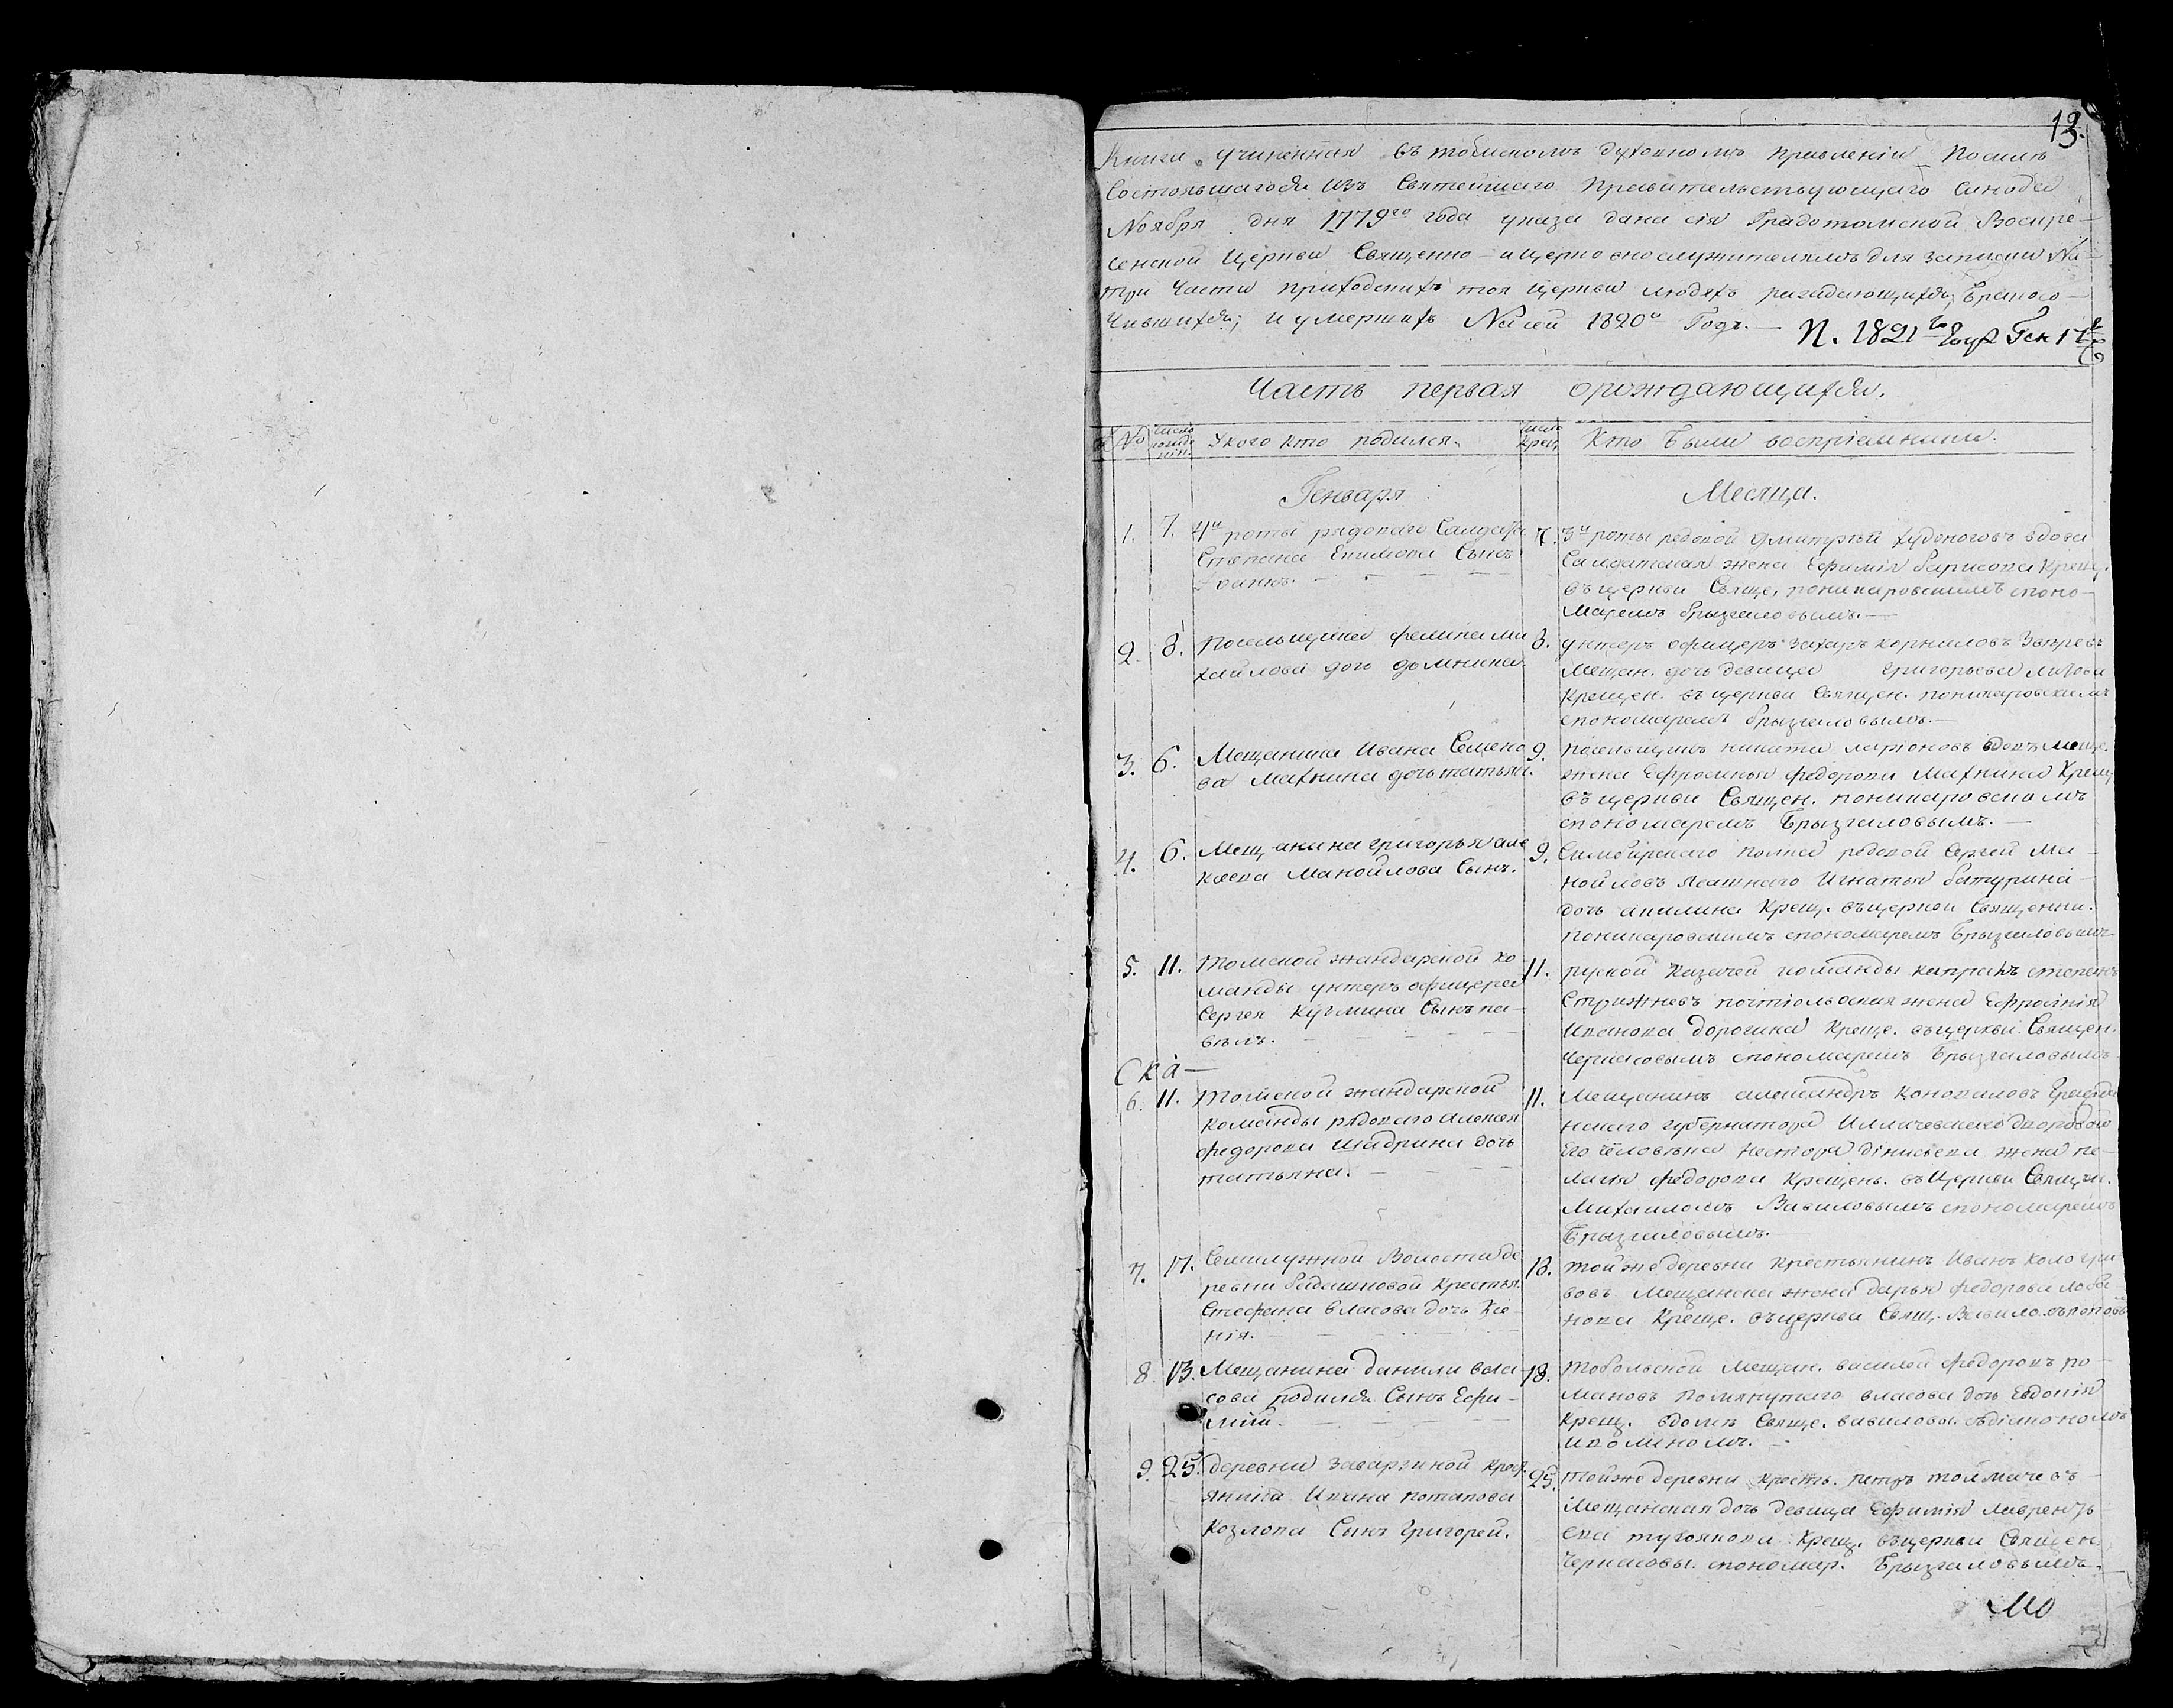 13.
Книга учиненная въ томскомъ духовномъ правленiи по силе
Состоявшагося изъ Святейшаго Правительствующаго Синода
Ноября дня 1779го года указа дана сiя Градотомской Воскре-
сенской Церкви Священно-ицерковнослужителямъ для записки На
три Части приходскихъ тоя Церкви людяхъ раждающихся, Бракосо-
Чившихся; и умершихъ На сей 1820й Годъ. —
N. 1821го Ген 17
Часть первая орождающихся.
No число рожденiя. Укого кто родился. Число Крещ. Кто Были воспрiемники.
Генваря Месяца.
1. 7. 4й роты рядоваго Салдата
Степана Екимова Сынъ
Iоаннъ. —
7. 3й роты редовой Дмитрей Худоноговъ вдова
Салдатская жена Ефимiя Барисова Крещ.
въ церкви Свяще. поникаровскимъ споно-
Маремъ брызгаловымъ. —
2. 8. Посельщика Ми
хайлова дочь домника.
8. унтеръ офицеръ Захаръ корниловъ
Мещан. дочь девица Григорьева
Крещен. въ церкви Священ. поникаровскимъ
спономаремъ брызгаловымъ. —
3. 6. Мещанина Ивана Семено
ва Махнина дочь татьян.
9. посельщикъ никита ларiоновъ
жена Ефросинья федорова Махнина Крещ.
въ церкви Священ. поникаровскимъ
спономаремъ Брызгаловымъ. —
4. 6. Мещанина григорья але
ксеева Манойлова Сынъ.
9. Симбирскаго полка редовой Сергей Ма-
нойловъ ясашнаго Игнатья батурина
дочь акилина Крещ. въ церкви Священни.
поникаровскимъ спономаремъ Брызгаловымъ
5. 11. томской жандарской ко
манды унтеръ офицера
Сергея Кузмина Сынъ па-
велъ. —
11. руской Казачей команды капралъ степанъ
Стрижневъ почтiольоская жена Ефросинiя
Иванова дорогина Креще. въцеркви Священ.
Черкасовымъ спономаремъ Брызгаловымъ
Ска —
6. 11. томской жандарской
команды рядоваго Алексея
федорова Шадрина дочь
татьяна. —
11. Мещанинъ александръ Коновалов Гражда
нскаго губернатора Илличевскаго дворовой
Его Человека Нестора дiнисьева жена пе-
лагiя федорова Крещень. въ Церкви Священ.
Михаиломъ Вавиловымъ спономаремъ
Брызгаловымъ. —
7. 17. Семилужной Волости де
ревни бадашковой крестья.
Стефана власова дочь Ксе-
нiя. —
18. тойже деревни Крестьянинъ Иванъ кологри
вовъ Мещанска жена дарья федорова
Креще. въцеркви Свящ.
8. 13. Мещанина данилы вла-
сова родился Сынъ Ефи-
мiй. —
18. тобольской Мещан. василей федоровъ ро-
мановъ помянутаго власова дочь Евдокiя
Крещ. вдоме Свяще. вавиловы. съдiаконом
икоминомъ. —
9. 25. деревни Заварзиной Крест.
янина Ивана потапова
Козлова Сынъ Григорей.
25. тойже деревни кресть. петръ толмачевъ
Мещанская дочь девица Ефимiя лаврентъ
ева Крещ. въцеркви Священ.
Черкасовы. спономар. Брызгаловымъ.
Мо